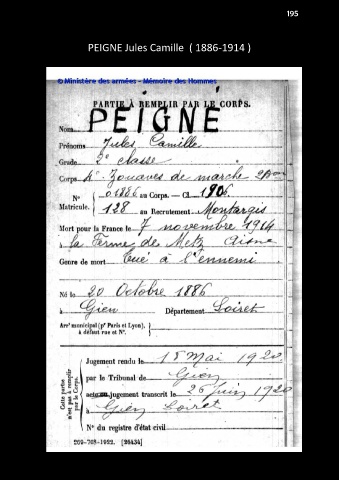 195
PEIGNE Jules Camille ( 1886-1914 )
© Ministère des armées - Mémoire des Hommes
PARTIE À REMPLIR PAR LE CORPS.
Nom PEIGNÉ
Prénoms Jules Camille
Grade 2e classe
Corps 4e Zouaves de marche
N° 01886 au Corps. — Cl. 1906
Matricule. 128 au Recrutement Montargis
Mort pour la France le 7 novembre 1914
à la Ferme de Metz Aisne
Genre de mort tué à l'ennemi
Né le 20 Octobre 1886
à Gien Département Loiret
Arrt municipal (pr Paris et Lyon),
à défaut rue et N°.
Cette partie n'est pas à remplir par le Corps.
Jugement rendu le 18 Mai 1920
par le Tribunal de Gien
acte ou jugement transcrit le 26 juin 1920
à Gien Loiret
N° du registre d'état civil
209-708-1922. [26434]